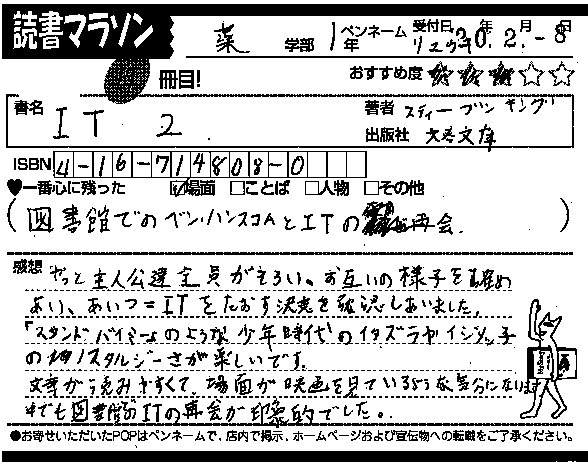 読書マラソン
薬 学部 1年 ペンネーム リュウキ 受付日 20年 2月 8日
冊目!
おすすめ度 ★★★☆☆
書名 IT 2
著者 スティーブン キング
出版社 文春文庫
ISBN 4-16-714808-0
♥一番心に残った ☑場面 □ことば □人物 □その他
(図書館でのベン・ハンスコムとITの再会.)
感想 やっと主人公達全員がそろい、お互いの様子を確め
あい、あいつ=ITをたおす決意を確認しあいました。
「スタンド バイ ミー」のような少年時代のイタズラやイジメッ子
のノスタルジーさが楽しいです。
文章が読みやすくて、場面が映画を見ているような気分になります
中でも図書館のITの再会が印象的でした。
●お寄せいただいたPOPはペンネームで、店内で掲示、ホームページおよび宣伝物への転載をご了承ください。